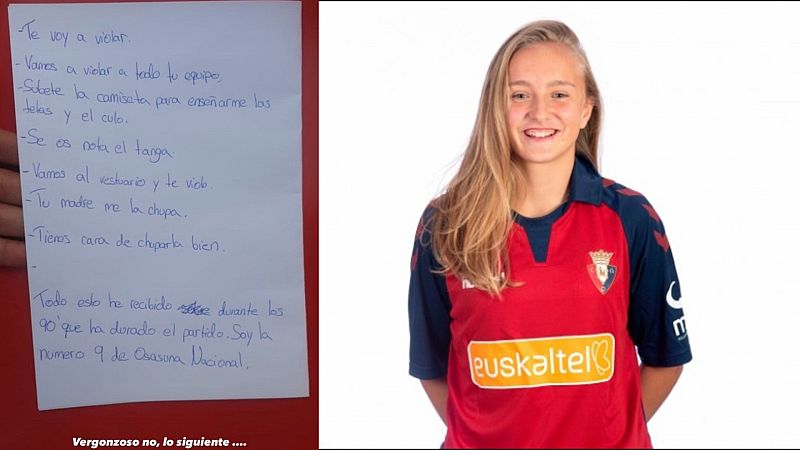 - Te voy a violar.
- Vamos a violar a todo tu equipo,
- Subete la camiseta para enseñarme las
tetas y el culo.
- Se os nota el tanga.
- Vamos al vestuario y te violo.
- Tu madre me la chupa.
- Tienes cara de chuparla bien.
-
Todo esto he recibido durante los
90' que ha durado el partido. Soy la
numero 9 de Osasuna Nacional.
Vergonzoso no, lo siguiente ....
euskaltel